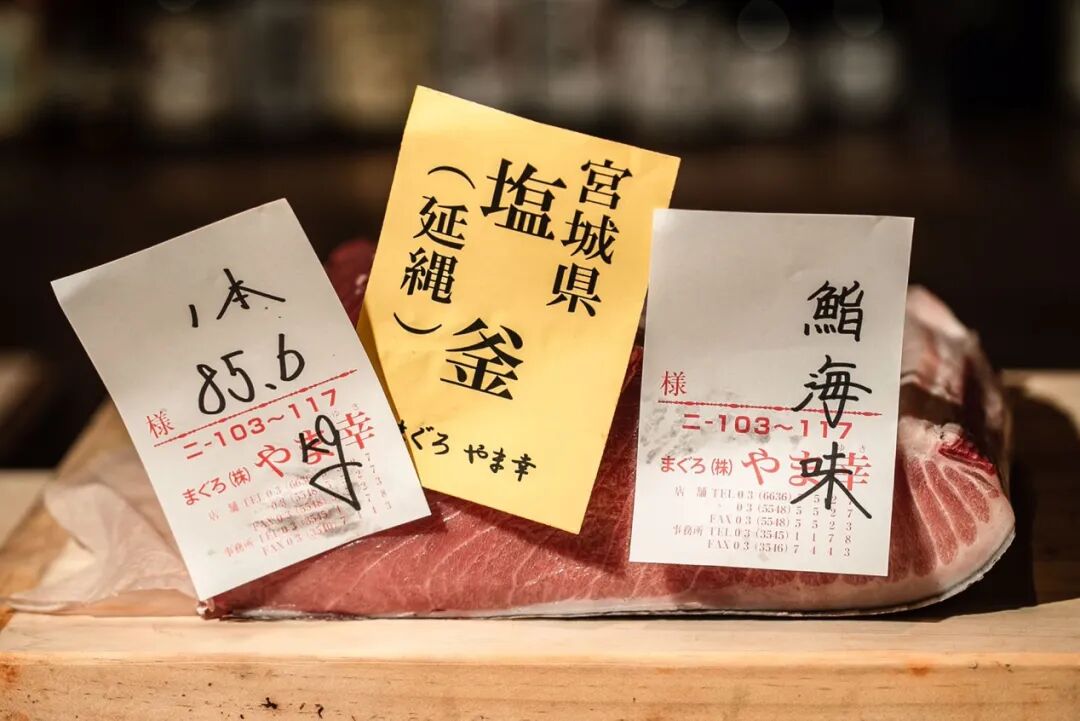 1本
85.6
kg
様
二-103〜117
まぐろ(株)やま幸
店舗TEL03(6636)
03(5548)
FAX03(5548)
事務所TEL03(3545)
FAX03(3546)
宮城県
塩釜
(延縄)
まぐろ やま幸
鮨海味
様
二-103〜117
まぐろ(株)やま幸
ゆき
店舗TEL03(6636)
03(5548)5527
FAX03(5548)5523
事務所TEL03(3545)1178
FAX03(3546)7443